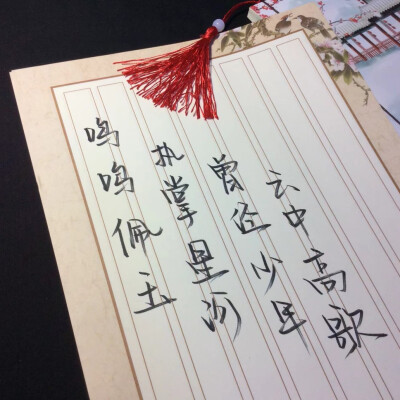 鸣鸣佩玉
执掌星河
曾经少年
云中高歌